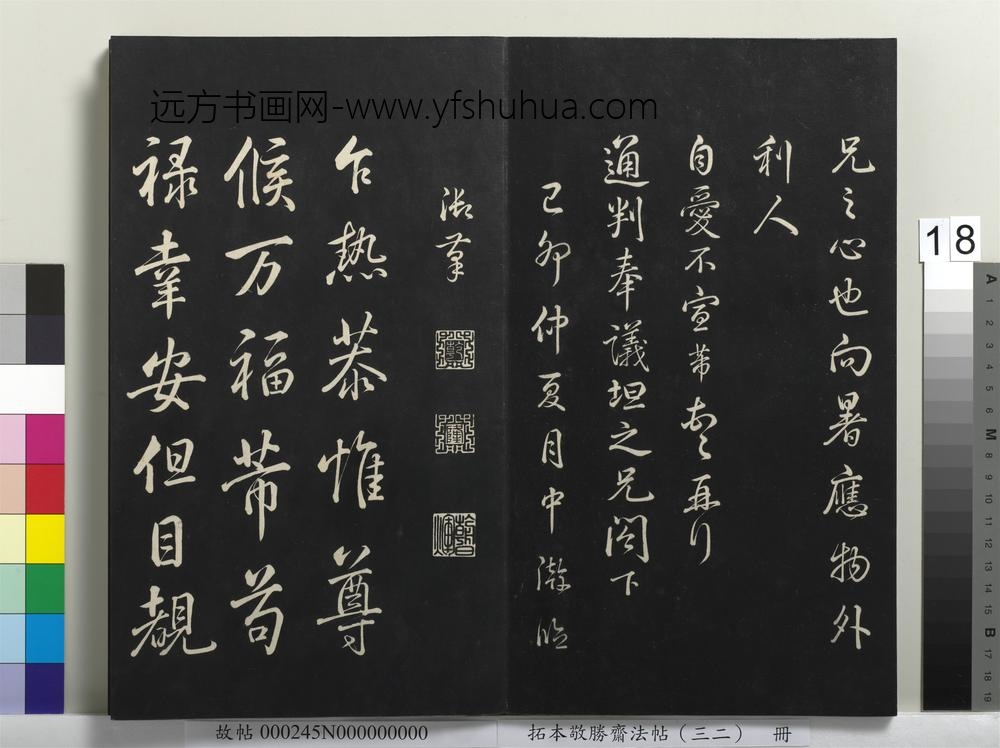 远方书画网-www.yfshuhua.com
兄之心也向暑應物外
利人
自愛不宣芾頓首再行
通判奉議坦之兄閣下
己卯仲夏月中澣臨
乍熱恭惟尊
候万福芾苟
禄幸安但目覩
18
故帖 000245N000000000
拓本敬勝齋法帖（三二） 冊